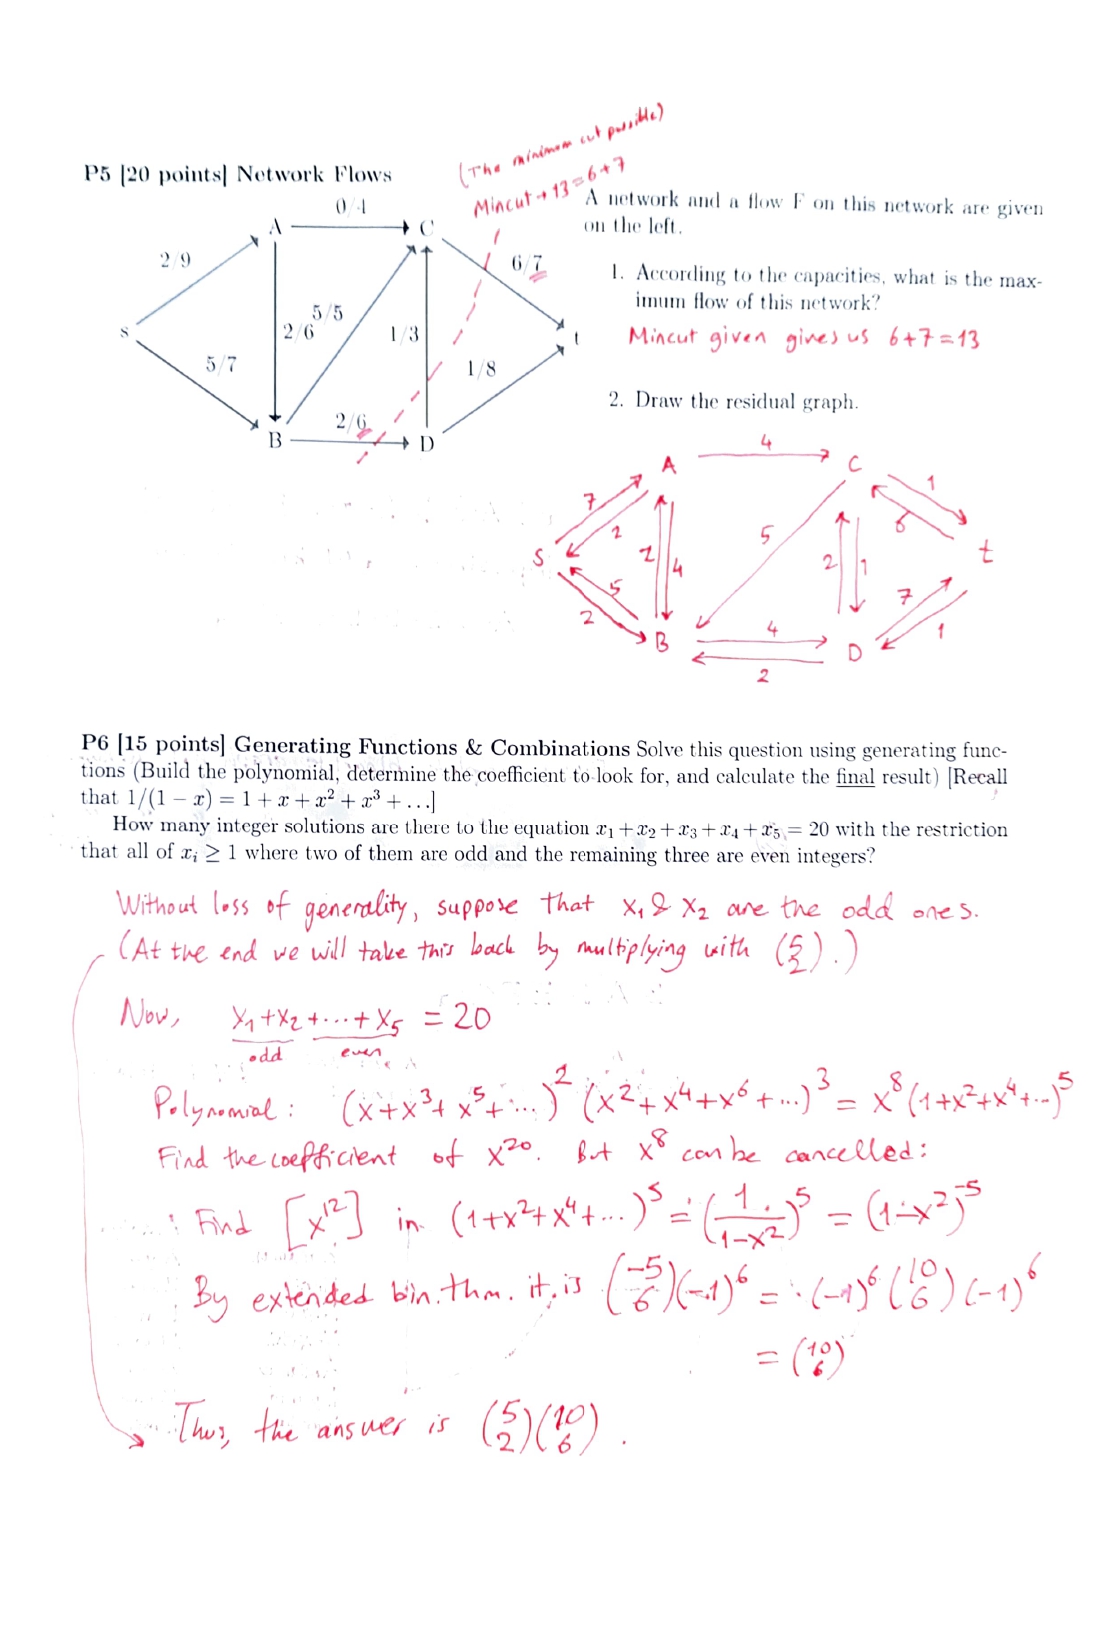 (The minimum cut possible)
Mincut → 13 = 6+7
P5 [20 points] Network Flows
A network and a flow F on this network are given
on the left.
0/4
A
C
2/9
6/7
s
5/5
2/6
1/3
t
5/7
1/8
2/6
B
D
1. According to the capacities, what is the max-
imum flow of this network?
Mincut given gives us 6+7=13
2. Draw the residual graph.
4
A
C
7
2
1
6
S
2
4
5
2
1
t
5
2
7
1
B
4
D
2
P6 [15 points] Generating Functions & Combinations Solve this question using generating func-
tions (Build the polynomial, determine the coefficient to look for, and calculate the final result) [Recall
that 1/(1 − x) = 1 + x + x² + x³ + ...]
How many integer solutions are there to the equation x₁ + x₂ + x₃ + x₄ + x₅ = 20 with the restriction
that all of xᵢ ≥ 1 where two of them are odd and the remaining three are even integers?
Without loss of generality, suppose that x₁ & x₂ are the odd ones.
(At the end we will take this back by multiplying with (5 2).)
Now, x₁+x₂+...+x₅ = 20
odd even
Polynomial: (x+x³+x⁵+...)² (x²+x⁴+x⁶+...)³ = x⁸(1+x²+x⁴+...)⁵
Find the coefficient of x²⁰. But x⁸ can be cancelled:
Find [x¹²] in (1+x²+x⁴+...)⁵ = (1/(1-x²))⁵ = (1-x²)⁻⁵
By extended bin. thm. it is (-5 6)(-1)⁶ = (-1)⁶ (10 6) (-1)⁶
= (10 6)
Thus, the answer is (5 2)(10 6).